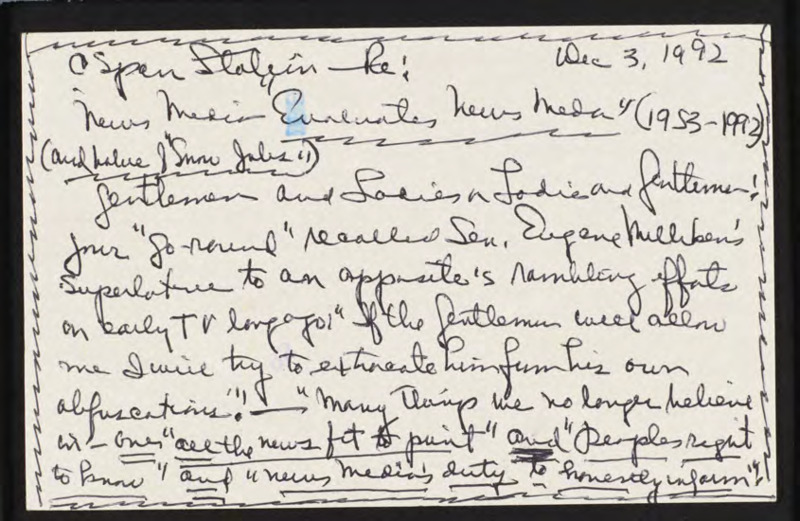 C Span Station — Re: Dec 3, 1992
"News Media "Evaluates News Meda" (1953-1992)
(and value of "Snow Jobs")
Gentlemen and Ladies or Ladies and Gentlemen:
your "go-round" recalled Sen. Eugene Milliken's
superlative to an opposite's rambling efforts
on early TV long ago: "If the gentleman will allow
me I will try to extricate him from his own
obfuscations"! — "Many things we no longer believe
in — ones "all the news fit to print" and "Peoples right
to know" and "news media's duty to honestly inform"!